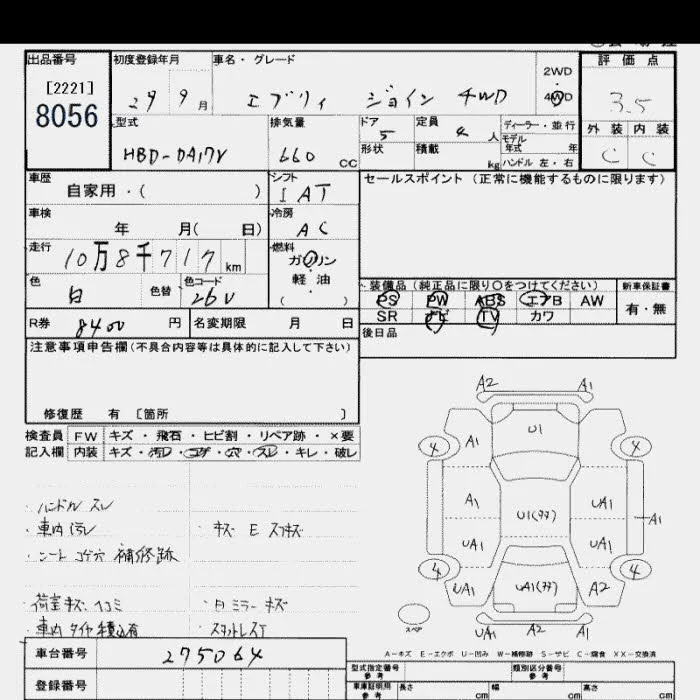 出品番号 初度登録年月 車名・グレード 評価点
[2221]
8056 29 9月 エブリイ ジョイン 4WD 2WD 4WD 3.5
型式 排気量 ドア 定員 ディーラー・並行 外装 内装
HBD-DA17V 660 CC 5 4人 モデル年式 年 C C
形状 積載 kg ハンドル 左・右
車歴 自家用・( ) シフト IAT セールスポイント (正常に機能するものに限ります)
車検 年 月( 日) 冷房 AC
走行 10万8千717km 燃料 ガソリン・軽油 ( )
色 白 色替 色コード 26V
装備品 (純正品に限り○をつけてください) 新車保証書
PS PW ABS エアB AW 有・無
SR ナビ TV カワ
R券 8400円 名変期限 月 日 後日品
注意事項申告欄(不具合内容等は具体的に記入して下さい)
修復歴 有 [箇所 ]
検査員 FW キズ・飛石・ヒビ割・リペア跡・×要
記入欄 内装 キズ・汚レ・コゲ・穴・スレ・キレ・破レ
・ハンドル スレ
・車内 汚レ ・キズ E スリキズ
・シート コゲ穴 補修跡
・荷室 キズ ヘコミ ・白ミラー キズ
・車内 タイヤ 積込有 ・スタットレスT
A2 A1
4 A1 U1 4
A1 U1(タタ) UA1 A1
UA1 UA1
4 UA1 UA1(タタ) A2 4
スペア UA1 A2 A1
A-キズ E-エクボ U-凹み W-補修跡 S-サビ C-腐食 XX-交換済
車台番号 275064
登録番号
型式指定番号 参考 類別区分番号 参考
車庫証明用 参考 長さ cm 幅 cm 高さ cm